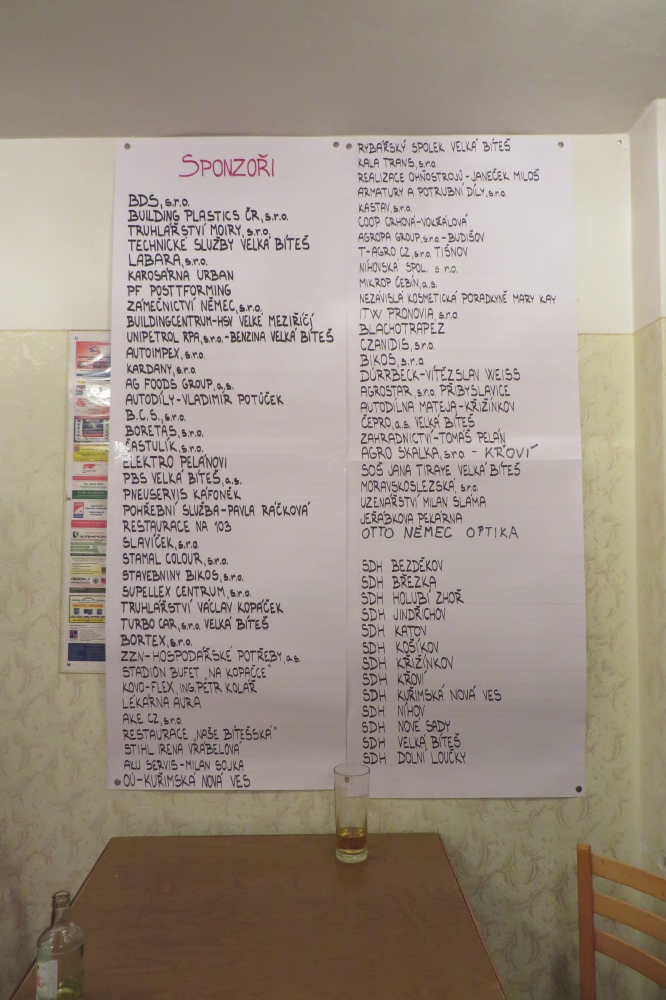 SPONZOŘI
BDS, s.r.o.
BUILDING PLASTICS ČR, s.r.o.
TRUHLÁŘSTVÍ MOIRY, s.r.o.
TECHNICKÉ SLUŽBY VELKÁ BÍTEŠ
LABARA, s.r.o.
KAROSÁRNA URBAN
PF POSTTFORMING
ZÁMEČNICTVÍ NĚMEC, s.r.o.
BUILDINGCENTRUM-HSV VELKÉ MEZIŘÍČÍ
UNIPETROL RPA, s.r.o.-BENZINA VELKÁ BÍTEŠ
AUTOIMPEX, s.r.o.
KARDANY, s.r.o.
AG FOODS GROUP, a.s.
AUTODÍLY-VLADIMÍR POTŮČEK
B.C.S., s.r.o.
BORETAS, s.r.o.
ČASTULÍK, s.r.o.
ELEKTRO PELÁNOVI
PBS VELKÁ BÍTEŠ, a.s.
PNEUSERVIS KAFONĚK
POHŘEBNÍ SLUŽBA-PAVLA RÁČKOVÁ
RESTAURACE NA 103
SLAVÍČEK, s.r.o.
STAMAL COLOUR, s.r.o.
STAVEBNINY BIKOS, s.r.o.
SUPELLEX CENTRUM, s.r.o.
TRUHLÁŘSTVÍ VÁCLAV KOPÁČEK
TURBO CAR, s.r.o. VELKÁ BÍTEŠ
BORTEX, s.r.o.
ZZN-HOSPODÁŘSKÉ POTŘEBY, a.s.
STADION BUFET „NA KOPAČCE"
KOVO-FLEX, ING. PETR KOLÁŘ
LÉKÁRNA AURA
AKE CZ, s.r.o.
RESTAURACE „NAŠE BÍTEŠSKÁ"
STIHL IRENA VRÁBELOVÁ
AKU SERVIS-MILAN SOJKA
OÚ-KUŘIMSKÁ NOVÁ VES
RYBÁŘSKÝ SPOLEK VELKÁ BÍTEŠ
KALA TRANS, s.r.o.
REALIZACE OHŇOSTROJŮ-JANEČEK MILOŠ
ARMATURY A POTRUBNÍ DÍLY, s.r.o.
KASTAV, s.r.o.
COOP CRHOVÁ-VOKŘÁLOVÁ
AGROPA GROUP, s.r.o.-BUDIŠOV
T-AGRO CZ, s.r.o. TIŠNOV
NÍHOVSKÁ SPOL. s r.o.
MIKROP ČEBÍN, a.s.
NEZÁVISLÁ KOSMETICKÁ PORADKYNĚ MARY KAY
ITW PRONOVIA, s.r.o.
BLACHOTRAPEZ
CZANIDIS, s.r.o.
BIKOS, s.r.o.
DÜRRBECK-VÍTĚZSLAV WEISS
AGROSTAR, s.r.o. PŘIBYSLAVICE
AUTODÍLNA MATEJA-KŘIŽÍNKOV
ČEPRO, a.s. VELKÁ BÍTEŠ
ZAHRADNICTVÍ-TOMÁŠ PELÁN
AGRO SKALKA, s.r.o. - KŘOVÍ
SOŠ JANA TIRAYE VELKÁ BÍTEŠ
MORAVSKOSLEZSKÁ, s.r.o.
UZENÁŘSTVÍ MILAN SLÁMA
JEŘÁBKOVA PEKÁRNA
OTTO NĚMEC OPTIKA
SDH BEZDĚKOV
SDH BŘEZKA
SDH HOLUBÍ ZHOŘ
SDH JINDŘICHOV
SDH KATOV
SDH KOŠÍKOV
SDH KŘIŽÍNKOV
SDH KŘOVÍ
SDH KUŘIMSKÁ NOVÁ VES
SDH NÍHOV
SDH NOVÉ SADY
SDH VELKÁ BÍTEŠ
SDH DOLNÍ LOUČKY